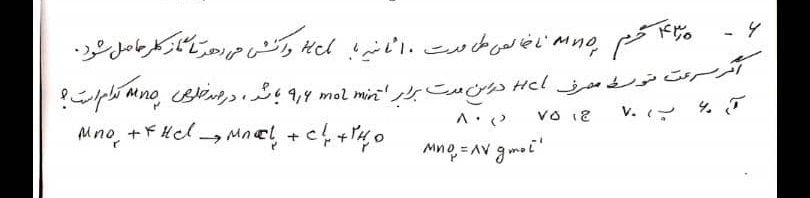 ۶ - ۴۳٫۵ گرم MnO₂ ناخالص طی مدت ۱۰ ثانیه با HCl واکنش می‌دهد تا گاز کلر حاصل شود.
اگر سرعت متوسط مصرف HCl در این مدت برابر ۹٫۶ mol min⁻¹ باشد، درصد خلوص MnO₂ کدام است؟
آ، ۶۰ ب، ۷۰ ج، ۷۵ د، ۸۰
MnO₂ + ۴HCl → MnCl₂ + Cl₂ + ۲H₂O MnO₂ = ۸۷ g mol⁻¹